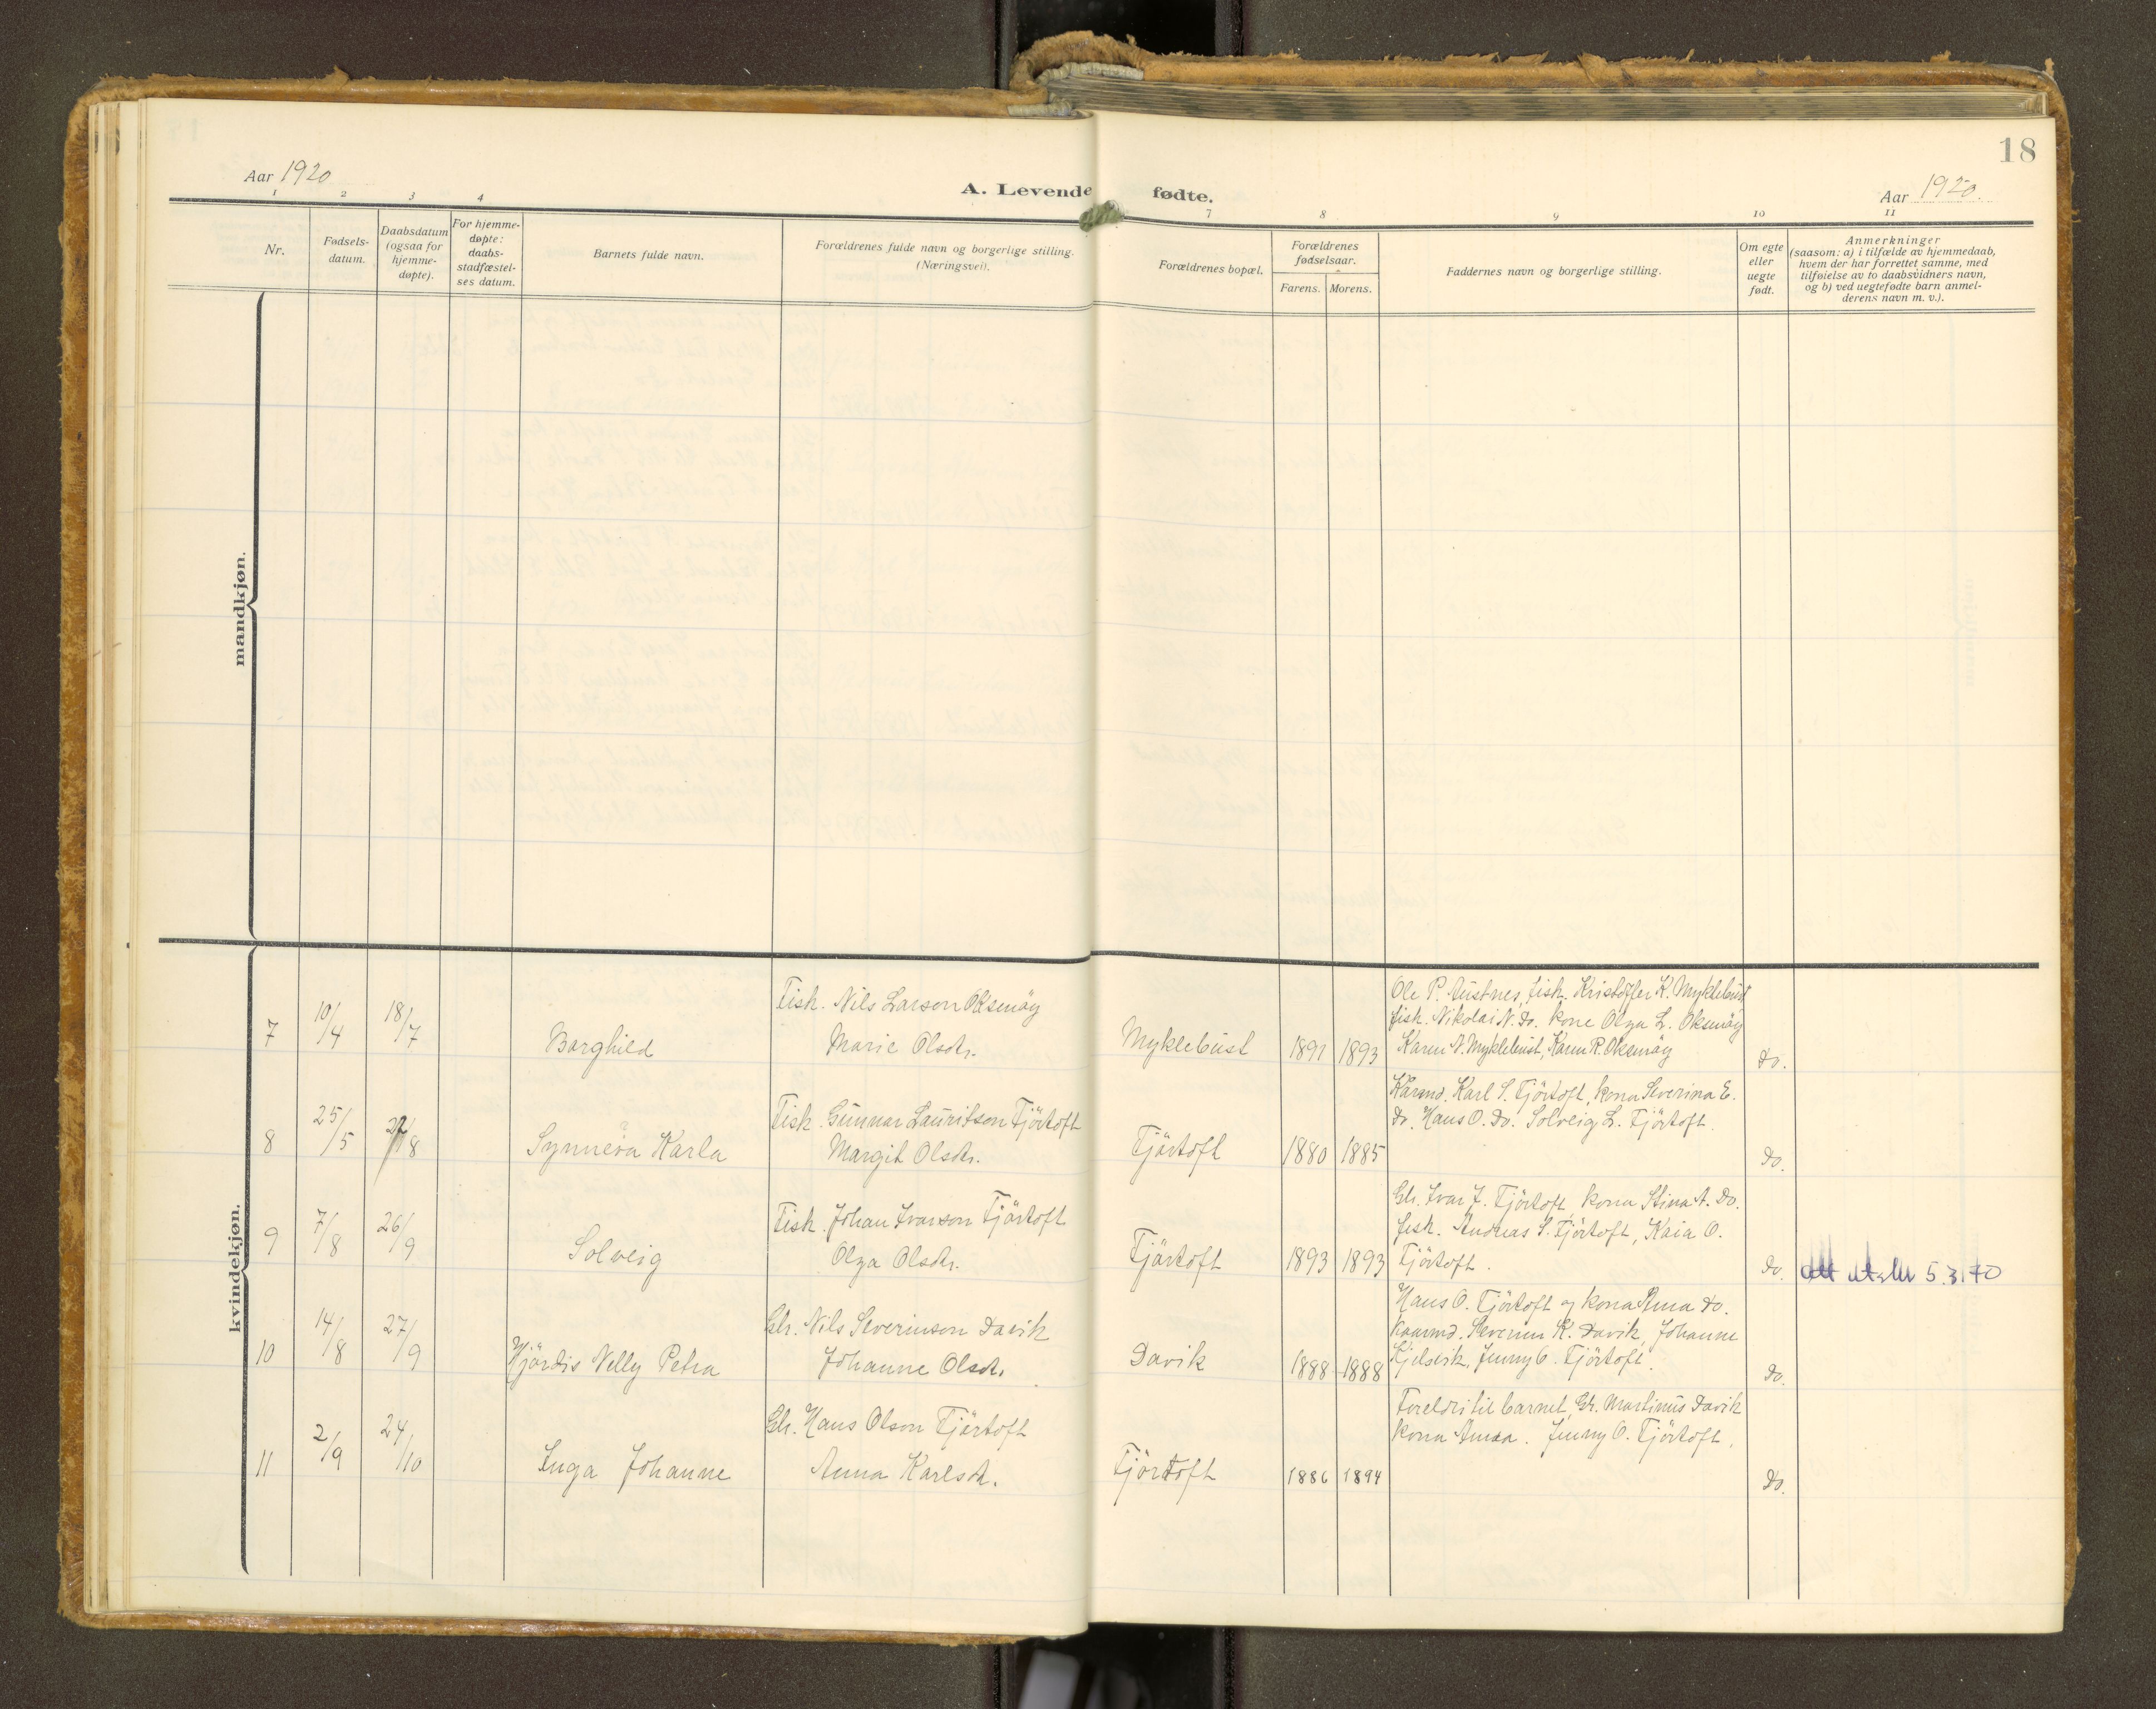 18
Aar 1920
A. Levende fødte.
Aar 1920.
1 2 3 4 7 8 9 10 11
Nr.
Fødsels-
datum.
Daabsdatum
(ogsaa for
hjemme-
døpte).
For hjemme-
døpte:
daabs-
stadfæstel-
ses datum.
Barnets fulde navn.
Forældrenes fulde navn og borgerlige stilling.
(Næringsvei).
Forældrenes bopæl.
Forældrenes
fødselsaar.
Farens. Morens.
Faddernes navn og borgerlige stilling.
Om egte
eller
uegte
født.
Anmerkninger
(saasom: a) i tilfælde av hjemmedaab,
hvem der har forrettet samme, med
tilføielse av to daabsvidners navn,
og b) ved uegtefødte barn anmel-
derens navn m. v.).
mandkjøn.
kvindekjøn.
7 10/4 18/7 Borghild
Fisk. Nils Larson Oksnöy
Marie Olsdtr.
Myklebust 1891 1893
Ole P. Austnes, fisk. Kristoffer K. Myklebust,
fisk. Nikolai N. Do. kone Olga L. Oksnöy
Karen N. Myklebust, Karen R. Oksnöy
do.
8 25/5 /8 Synneva Karla
Fisk. Gunnar Lauritson Fjörtoft
Margit Olsdtr.
Fjörtoft 1880 1885
Karmd. Karl S. Fjörtoft, kona Severina E.
do. Hans O. Do. Solveig L. Fjörtoft.
do.
9 7/8 26/9 Solveig
Fisk. Johan Ivarson Fjörtoft
Olga Olsdtr.
Fjörtoft 1893 1893
Gbr. Ivar J. Fjörtoft, kona Stina A. Do.
fisk. Andreas S. Fjörtoft, Kaia O.
Fjörtoft.
do.
5.3.70
10 14/8 27/9 Hjördis Nelly Petra
Gbr. Nils Severinson Davik
Johanne Olsdtr.
Davik 1888 1888
Hans O. Fjörtoft og kona Anna do.
kaarmd. Severin K. Davik, Johanne
Kjelsvik, Jenny O. Fjörtoft.
do.
11 2/9 24/10 Inga Johanne
Gbr. Hans Olson Fjörtoft
Anna Karlsdtr.
Fjörtoft 1886 1894
Foreldri til barnet, Gbr. Martinus Davik
kona Anna. Jenny O. Fjörtoft.
do.